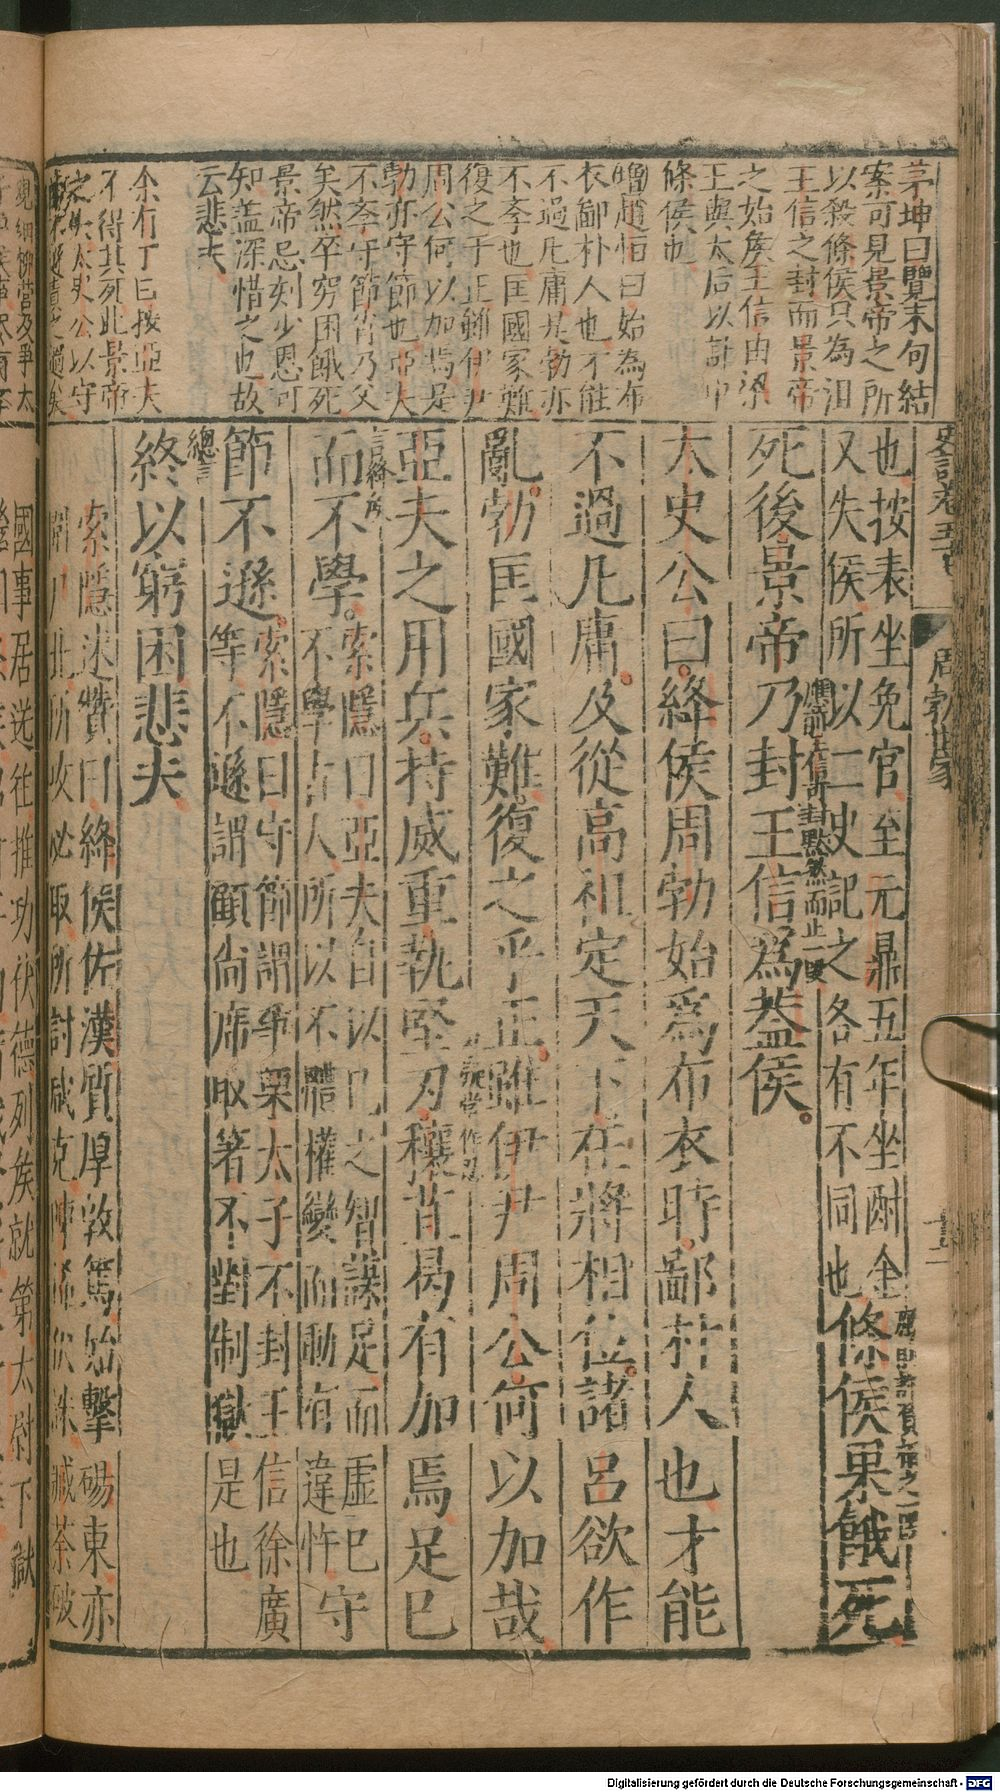 茅坤曰覽末句結
案可見景帝之所
以殺條侯只為沮
王信之封而景帝
之始矦王信由梁
王與太后以計中
條侯也
趙恒曰始為布
衣鄙朴人也不能
不過凡庸其勃亦
不夲也匡國家難
復之于正雖伊尹
周公何以加焉是
勃亦守節也亞夫
不夲守節皆乃父
矣然卒穷困餓死
景帝忌刻少恩可
知盖深惜之也故
云悲夫
余有丁曰按亞夫
不得其死此景帝
太史公以守
史記卷五十七
周勃世家
也按表坐免官至元鼎五年坐酎金
又失侯所以二史記之各有不同也
條侯果餓死
應前王信許封默然而止一段
應前許負相之一段
死後景帝乃封王信為蓋侯。
太史公曰。絳侯周勃始為布衣時。鄙朴人也才能
不過凡庸。及從高祖定天下在將相位。諸呂欲作
亂。勃匡國家難復之乎正。雖伊尹周公何以加哉。
亞夫之用兵。持威重執堅刃。穰苴曷有加焉足巳
而不學。
索隱曰亞夫自以巳之智謀足而虛巳
不學古人所以不體權變而動有違忤
守
節不遜。
索隱曰守節謂爭栗太子不封王信徐廣
等不遜謂顧尚席取箸不對制獄是也
總言
終以窮困悲夫
索隱述贊曰絳侯佐漢質厚敦篤始擊碭東亦
圍尸北所攻必取所討咸克陳豨伏誅臧荼破
國事居送往推功伏德列矦就第太尉下獄
Digitalisierung gefördert durch die Deutsche Forschungsgemeinschaft - DFG